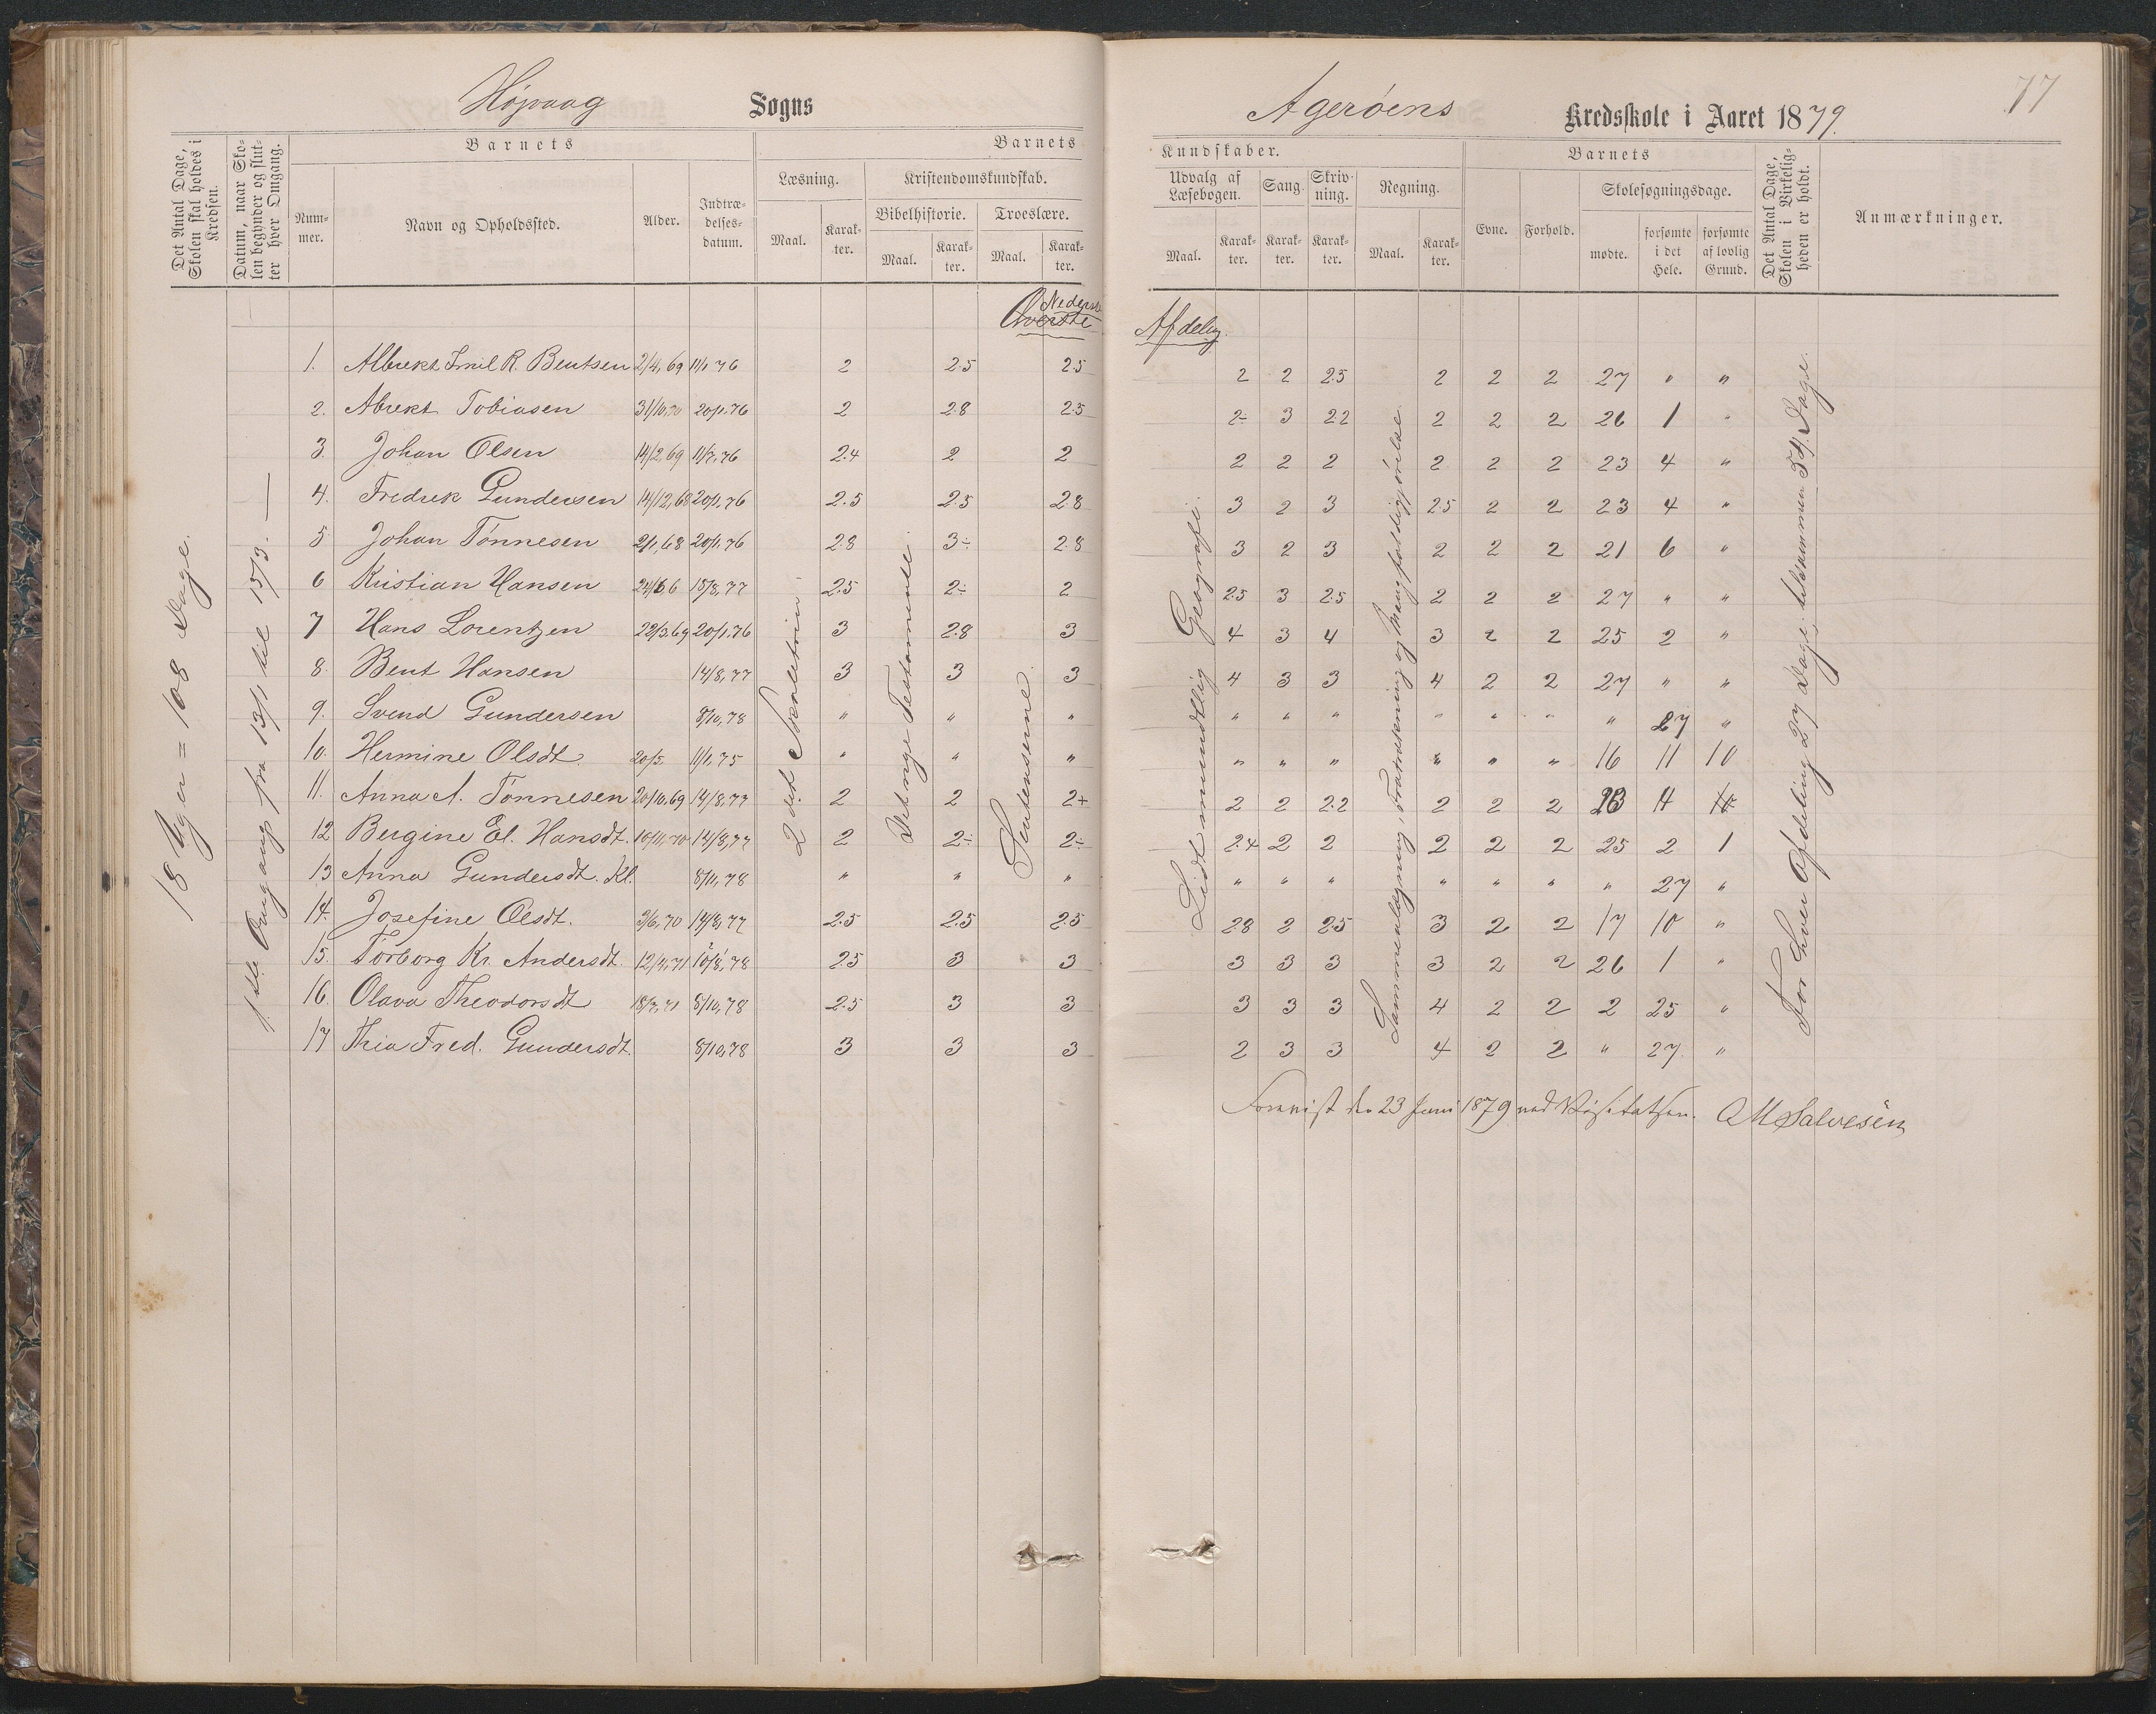 77
Høivaag Sogns
Agerøens Kredsskole i Aaret 1879.
Det Antal Dage, Skolen skal holdes i Kredsen.
Datum, naar Skolen begynder og slutter hver Omgang.
Barnets
Nummer.
Navn og Opholdssted.
Alder.
Indtrædelsesdatum.
Barnets
Læsning.
Maal.
Karakter.
Kristendomskundskab.
Bibelhistorie.
Maal.
Karakter.
Troeslære.
Maal.
Karakter.
Kundskaber.
Udvalg af Læsebogen.
Maal.
Karakter.
Sang.
Karakter.
Skrivning.
Karakter.
Regning.
Maal.
Karakter.
Barnets
Evne.
Forhold.
Skolesøgningsdage.
mødte.
forsømte i det Hele.
forsømte af lovlig Grund.
Det Antal Dage, Skolen i Virkeligheden er holdt.
Anmærkninger.
Nederste
Øverste Afdeling.
18 Uger = 108 Dage.
1ste Omgang fra 13/1 til 15/3. —
2det Skoletrin.
Det nye Testamente.
Sentenserne.
Lidt mundtlig Geografi.
Sammenlægning, Fradragning og Mangfoldiggjørelse.
For hver Afdeling 27 Dage, tilsammen 54 Dage.
1. Albrekt Emil R. Bentsen 2/4, 69 11/1, 76 2 2.5 2.5 2 2 2.5 2 2 2 27 " "
2. Abrekt Tobiasen 31/10, 70 20/1, 76 2 2.8 2.5 2÷ 3 2.2 2 2 2 26 1 "
3. Johan Olsen 14/2, 69 11/7, 76 2.4 2 2 2 2 2 2 2 2 23 4 "
4. Fredrek Gundersen 14/12, 68 20/1, 76 2.5 2.5 2.8 3 2 3 2.5 2 2 23 4 "
5 Johan Tønnesen 2/1, 68 20/1, 76 2.8 3÷ 2.8 3 2 3 2 2 2 21 6 "
6 Kristian Hansen 24/6 6 15/8, 77 2.5 2÷ 2 2.5 3 2.5 2 2 2 27 " "
7 Hans Lorentzen 22/3, 69 20/1, 76 3 2.8 3 4 3 4 3 2 2 25 2 "
8. Bent Hansen 14/8, 77 3 3 3 4 3 3 4 2 2 27 " "
9. Svend Gundersen 8/10, 78 " " " " " " " " " " 27 "
10. Hermine Olsdt. 20/5 11/1, 75 " " " " " " " " " 16 11 10
11. Anna A. Tønnesen 20/10, 69 14/8, 77 2 2 2+ 2 2 2.2 2 2 2 23 4
12 Bergine El. Hansdt. 10/11, 70 14/8, 77 2 2÷ 2÷ 2.4 2 2 2 2 2 25 2 1
13 Anna Gundersdt. Kl. 8/11, 78 " " " " " " " " " " 27 "
14. Josefine Olsdt. 3/6, 70 14/8, 77 2.5 2.5 2.5 2.8 2 2.5 3 2 2 17 10 "
15. Torborg Kr. Andersdt. 12/4, 71 10/8, 78 2.5 3 3 3 3 3 3 2 2 26 1 "
16. Olava Theodorsdt 18/7, 71 8/10, 78 2.5 3 3 3 3 3 4 2 2 2 25 "
17 Thia Fred. Gundersdt. 8/10, 78 3 3 3 2 3 3 4 2 2 " 27 "
Forevist den 23 Juni 1879 ved Visitatsen. OM Salvesen